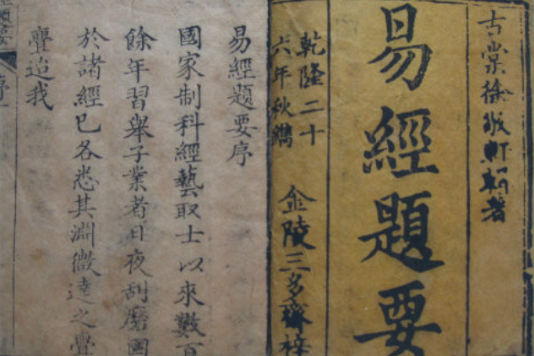 古棠徐敬軒輯著
易經題要
乾隆二十
六年秋鐫
金陵三多齋梓
易經題要序
國家制科經藝取士以來數百
餘年習舉子業者日夜刮磨
於諸經已各悉其淵微達之
迨我